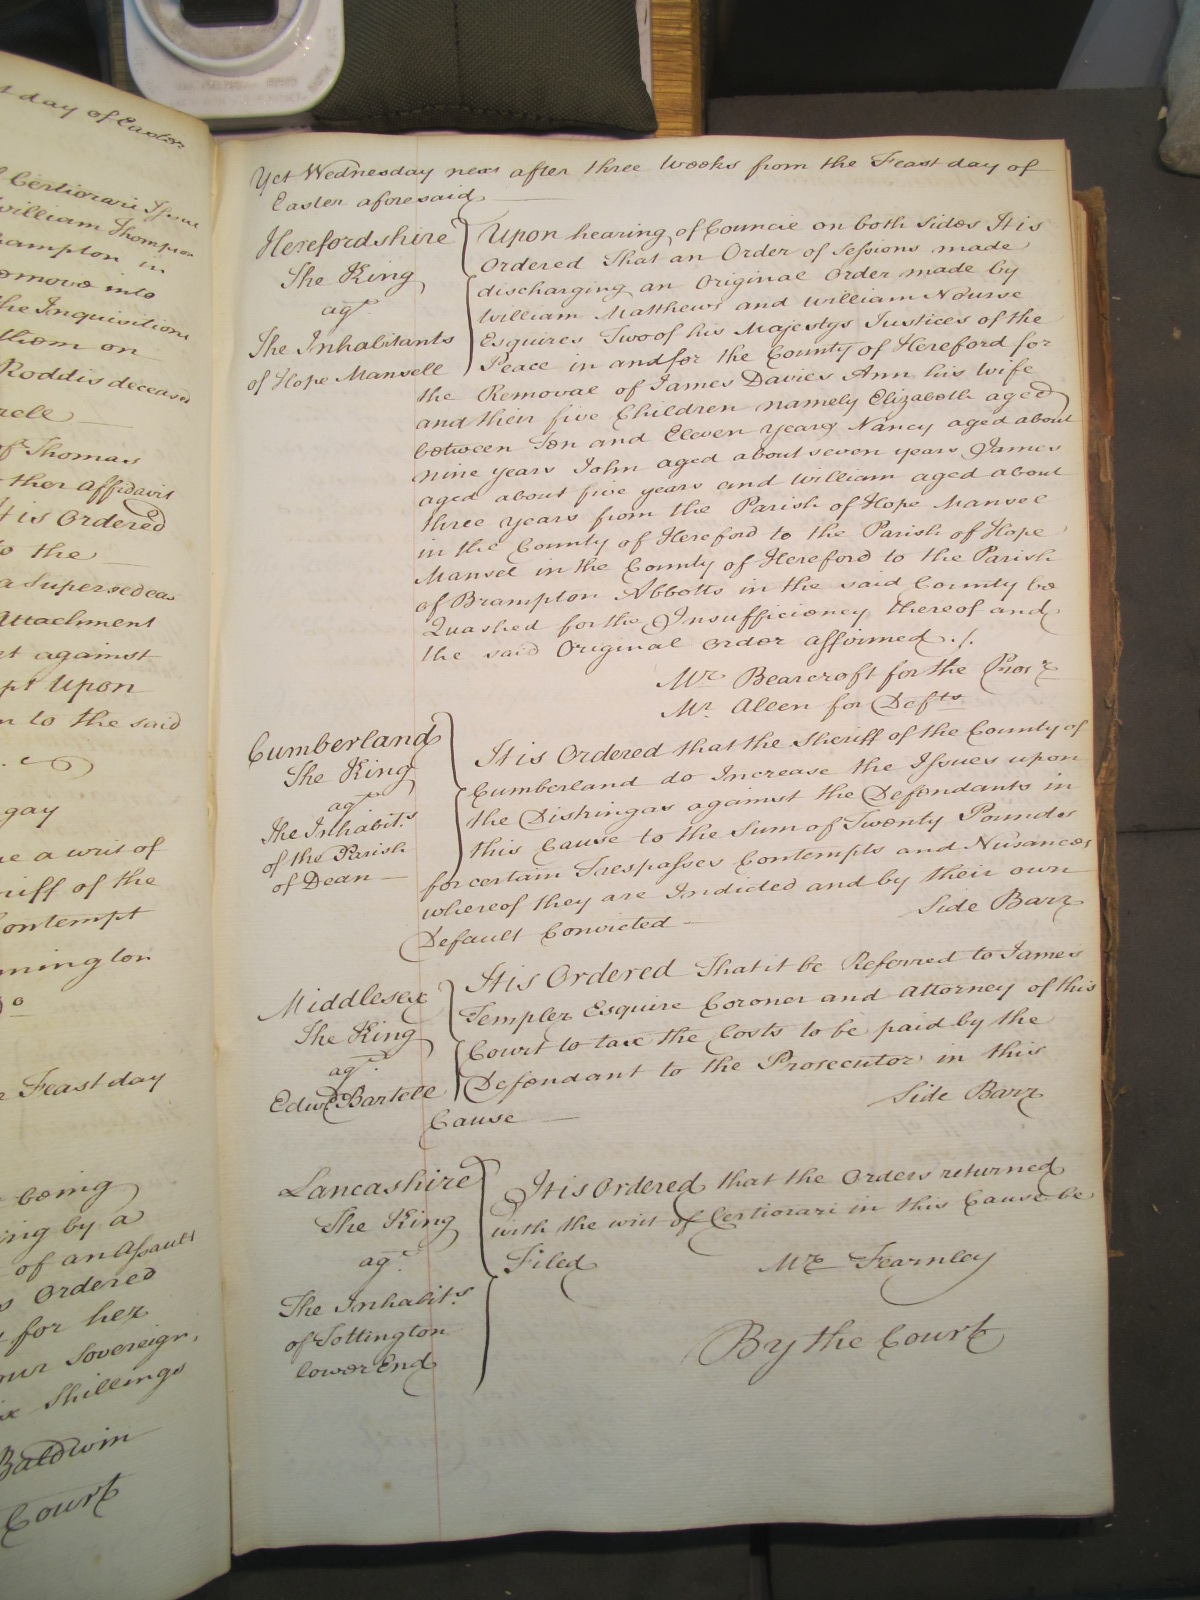 t day of Easter
Certiorari Issue
William Thompson
rampton in
emove into
the Inquisitions
them on
Roddis deceased
of Thomas
ther Affidavit
It is Ordered
to the
a Supersedeas
Attachment
against
pt Upon
n to the said
gay
ue a writ of
riff of the
Contempt
mington
Feast day
being
ing by a
of an Assault
Ordered
for her
our Sovereign
Shillings
Baldwin
Court
Yet Wednesday next after three Weeks from the Feast day of
Easter aforesaid
Herefordshire
The King
agt
The Inhabitants
of Hope Mansell
Upon hearing of Councie on both sides It is
Ordered That an Order of Sessions made
discharging an Original Order made by
William Matthews and William Nourse
Esquires Two of his Majestys Justices of the
Peace in and for the County of Hereford for
the Removal of James Davies Ann his Wife
and their five Children namely Elizabeth aged
between Ten and Eleven years Nancy aged about
nine years John aged about seven years James
aged about five years and William aged about
three years from the Parish of Hope Mansel
in the County of Hereford to the Parish of Hope
Mansel in the County of Hereford to the Parish
of Brampton Abbotts in the said County be
Quashed for the Insufficiency thereof and
the said Original order affirmed ./.
Mr Bearcroft for the Prosr
Mr. Allen for Defts
Cumberland
The King
agt
The Inhabits
of the Parish
of Dean
It is Ordered that the Sheriff of the County of
Cumberland do Increase the Issues upon
the Distringas against the Defendants in
this Cause to the Sum of Twenty Pounds
for certain Trespasses Contempts and Nusances
whereof they are Indicted and by their own
Default Convicted
Side Barr
Middlesex
The King
agt
Edwd Bartell
It is Ordered That it be Referred to James
Templer Esquire Coroner and Attorney of this
Court to tax the Costs to be paid by the
Defendant to the Prosecutor in this
Cause
Side Barr
Lancashire
The King
agt
The Inhabits
of Tottington
lower End
It is Ordered that the Orders returned
with the writ of Certiorari in this Cause be
Filed
Mr Fearnley
By the Court